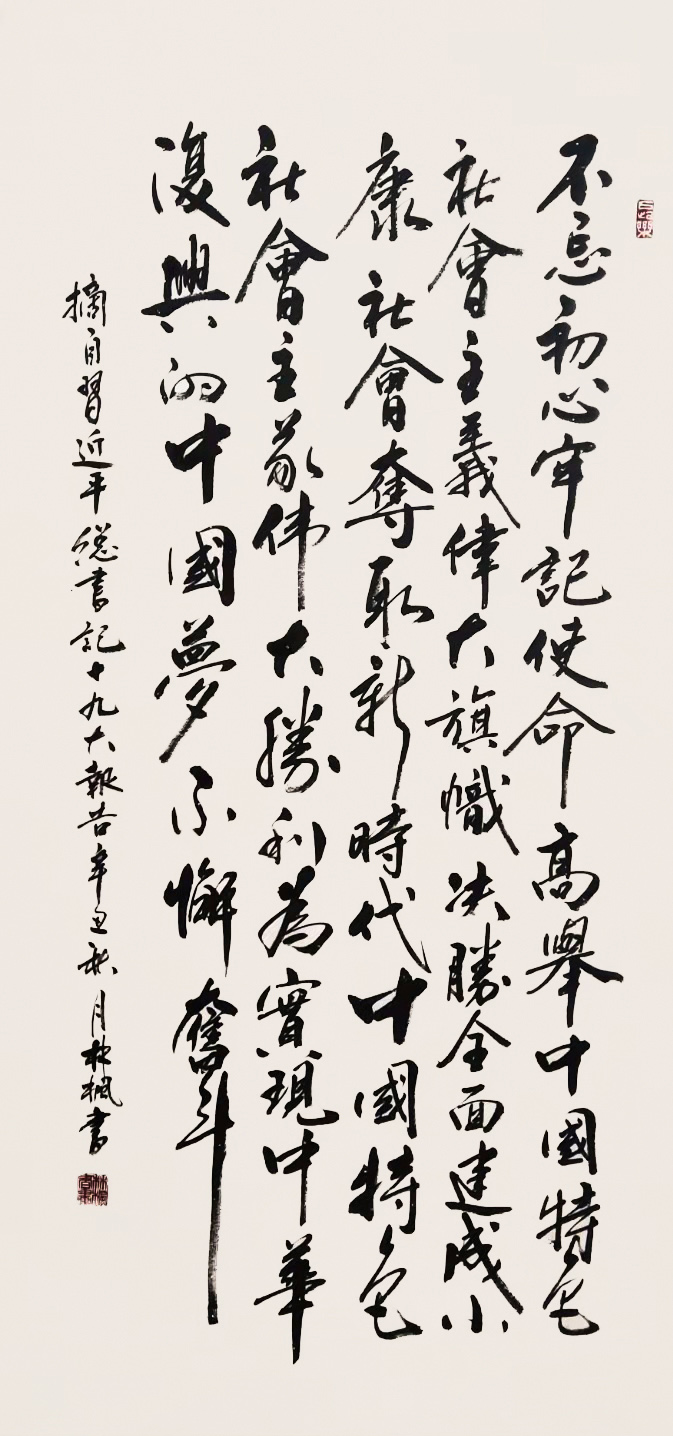 不忘初心牢記使命高舉中國特色
社會主義偉大旗幟决勝全面建成小
康社會奪取新時代中國特色
社會主义伟大勝利為實現中華
復興的中國夢不懈奮斗
摘自習近平總書記十九大報告辛丑秋月林楓書